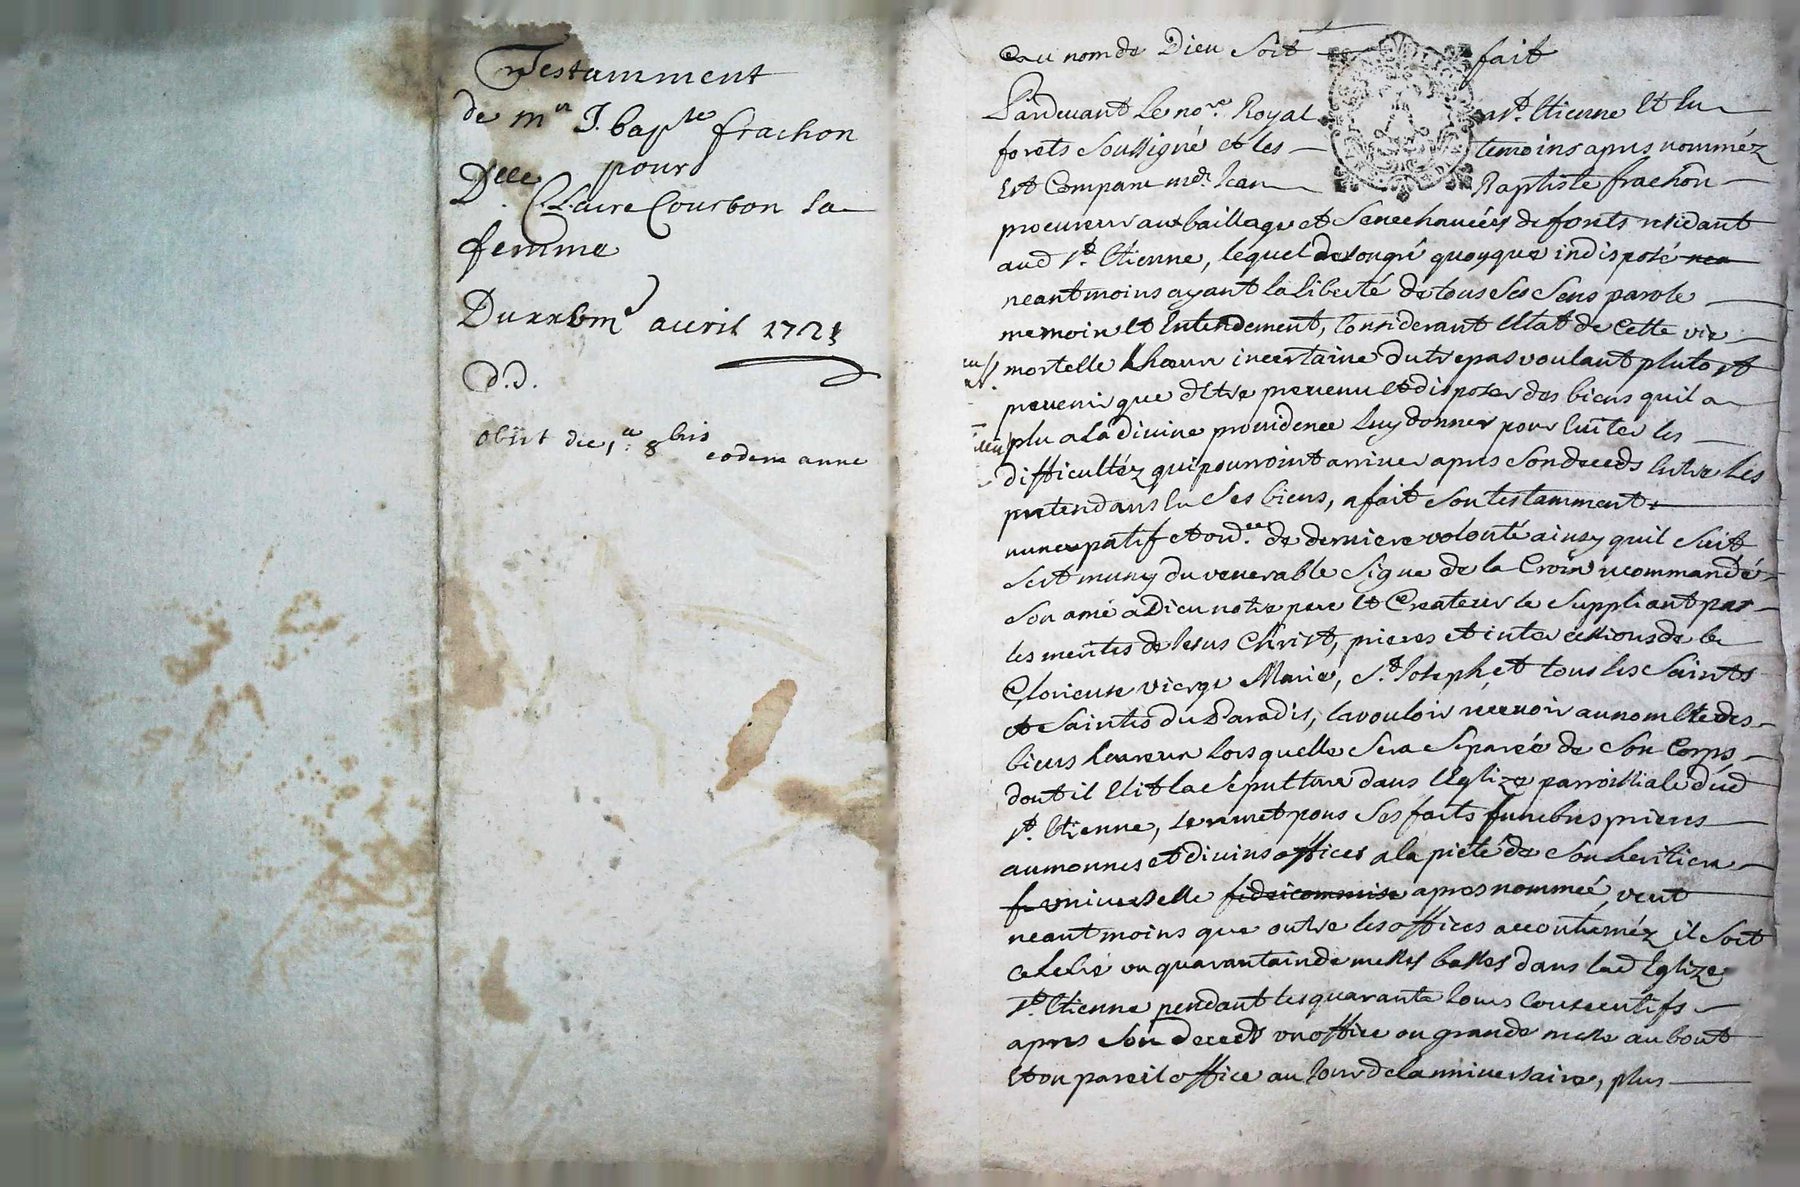 Testamment
de mr J. bapte frachon
pour
Delle Claire Courbon sa
femme
Du xxbme auril 1721
d.d.
obiit die 1a 8bris
eodem anno
Au nom de Dieu soit fait
Pardeuant le nore Royal a St. Etienne et en
forets soussigné et les temoins apres nomméz
Est Comparu mre Jean Baptiste frachon
procureur aux baillage et Senechaucéés de forets residant
aud St. Etienne, lequel de son gré quoyque indisposé
neantmoins ayant la liberté de tous ses sens parole
memoire et Entendement, Considerant Estat de Cette vie
mortelle Lheure incertaine du trepas voulant plutost
preuenir que dEtre preuenu et disposer des biens quil a
plu a La diuine prouidence Luy donner pour Euiter les
difficultéz qui pourroint arriuer apres son deceds Entre les
pretendans En ses biens, a fait son testamment
nuncupatif et ordre de derniere volonté ainsy quil suit
sest muny du venerable signe de la Croix recommandé
son ame a Dieu notre pere et Createur le suppliant par
les merites de Jesus Christ, prieres et intercessions de la
Glorieuse vierge Marie, St. Joseph, et tous les saints
et saintes du Paradis, la vouloir receuoir au nombre des
biens heureux lors quelle sera separéé de son Corps
dont il Elit la sepulture dans lEglize parroissiale dud
St. Etienne, se remet pour ses faits funebres prieres
aumonnes et diuins offices a la pieté de son heritiere
vniuerselle fideicommise apres nommeé, veut
neantmoins que outre les offices accoutuméz il soit
celebré vn quarantain de messes basses dans lad Eglize
St. Etienne pendant les quarante Jours Consecutifs
apres son deceds vn office ou grande messe au bout
Et vn pareil office au Jour de lanniuersaire, plus